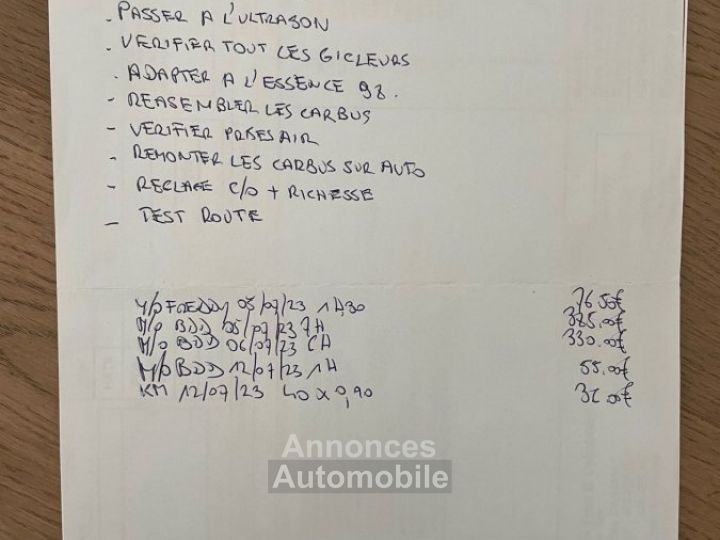 . PASSER A L'ULTRASON
. VERIFIER TOUT LES GICLEURS
. ADAPTER A L'ESSENCE 98.
- REASEMBLER LES CARBUS
- VERIFIER PRISES AIR
- REMONTER LES CARBUS SUR AUTO
- REGLAGE C/O + RICHESSE
- TEST ROUTE
M/O FREDDY 05/07/23 1H30 76.50€
M/O BDD 05/07/23 7H 385.00€
M/O BDD 06/07/23 6H 330.00€
M/O BDD 12/07/23 1H 55.00€
KM 12/07/23 40 x 0,90 €
Annonces
Automobile